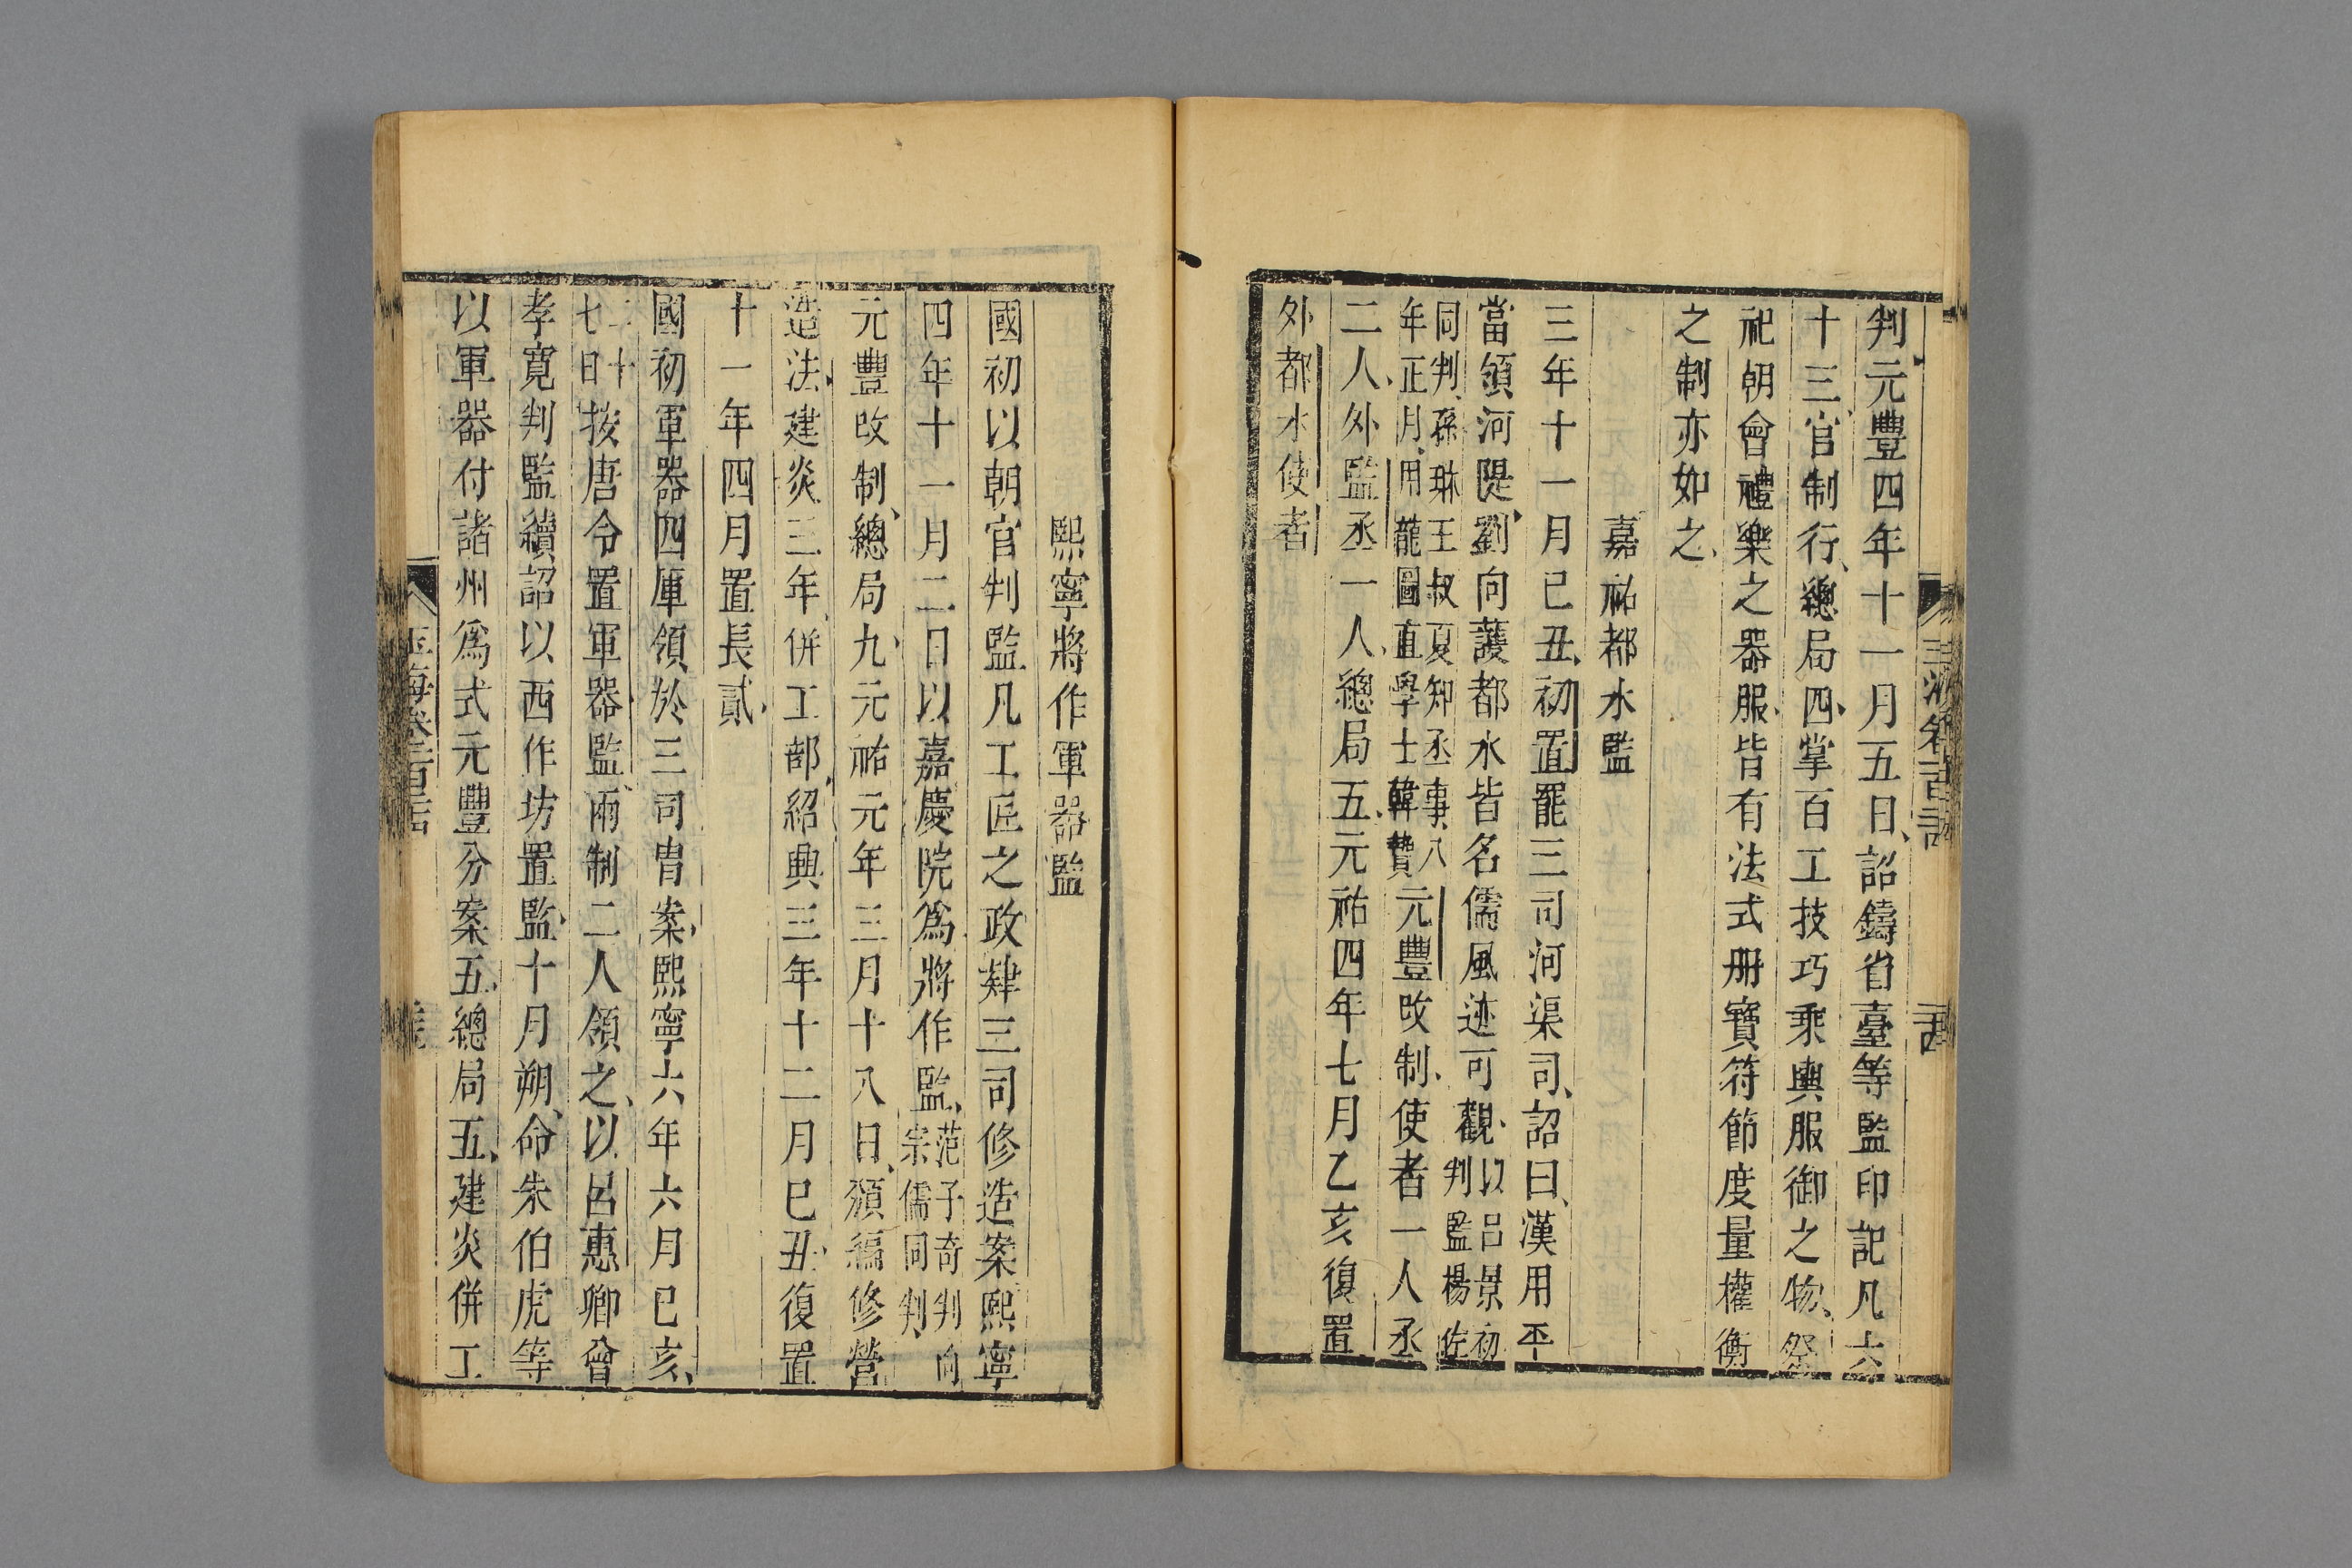 判元豐四年十一月五日詔鑄省臺等監印記凡六
十三官制行總局四掌百工技巧乘輿服御之物祭
祀朝會禮樂之器服皆有法式册寶符節度量權衡
之制亦如之
嘉祐都水監
三年十一月已丑初置罷三司河渠司詔曰漢用平
當領河隄劉向護都水皆名儒風迹可觀以吕景初
判監楊佐
同判孫琳王叔夏知丞事八
年正月用龍圖直學士韓贄元豐改制使者一人丞
二人外監丞一人總局五元祐四年七月乙亥復置
外都水使者
熙寧將作軍器監
國初以朝官判監凡工匠之政肄三司修造案熙寧
四年十一月二日以嘉慶院爲將作監范子奇判向
宗儒同判
元豐改制總局九元祐元年三月十八日頒編修營
造法建炎三年併工部紹興三年十二月巳丑復置
十一年四月置長貳
國初軍器四庫領於三司胄案熙寧六年六月已亥
二十
七日按唐令置軍器監兩制二人領之以呂惠卿曾
孝寛判監續詔以西作坊置監十月朔命朱伯虎等
以軍器付諸州爲式元豐分案五總局五建炎併工
玉海卷